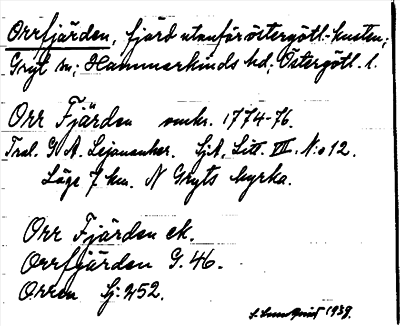 Orrfjärden, fjärd utanför östergötl.-kusten;
Gryt sn; Hammarkinds hd, Östergötl. l.
Orr Fjärden omkr. 1774-76.
G. A. Sjk, Litt. III. N:o 12.
Läge 7 km. N Gryts kyrka.
Orr Fjärden ek.
Orrfjärden G. 46.
Orren Sj. 252.
1939.